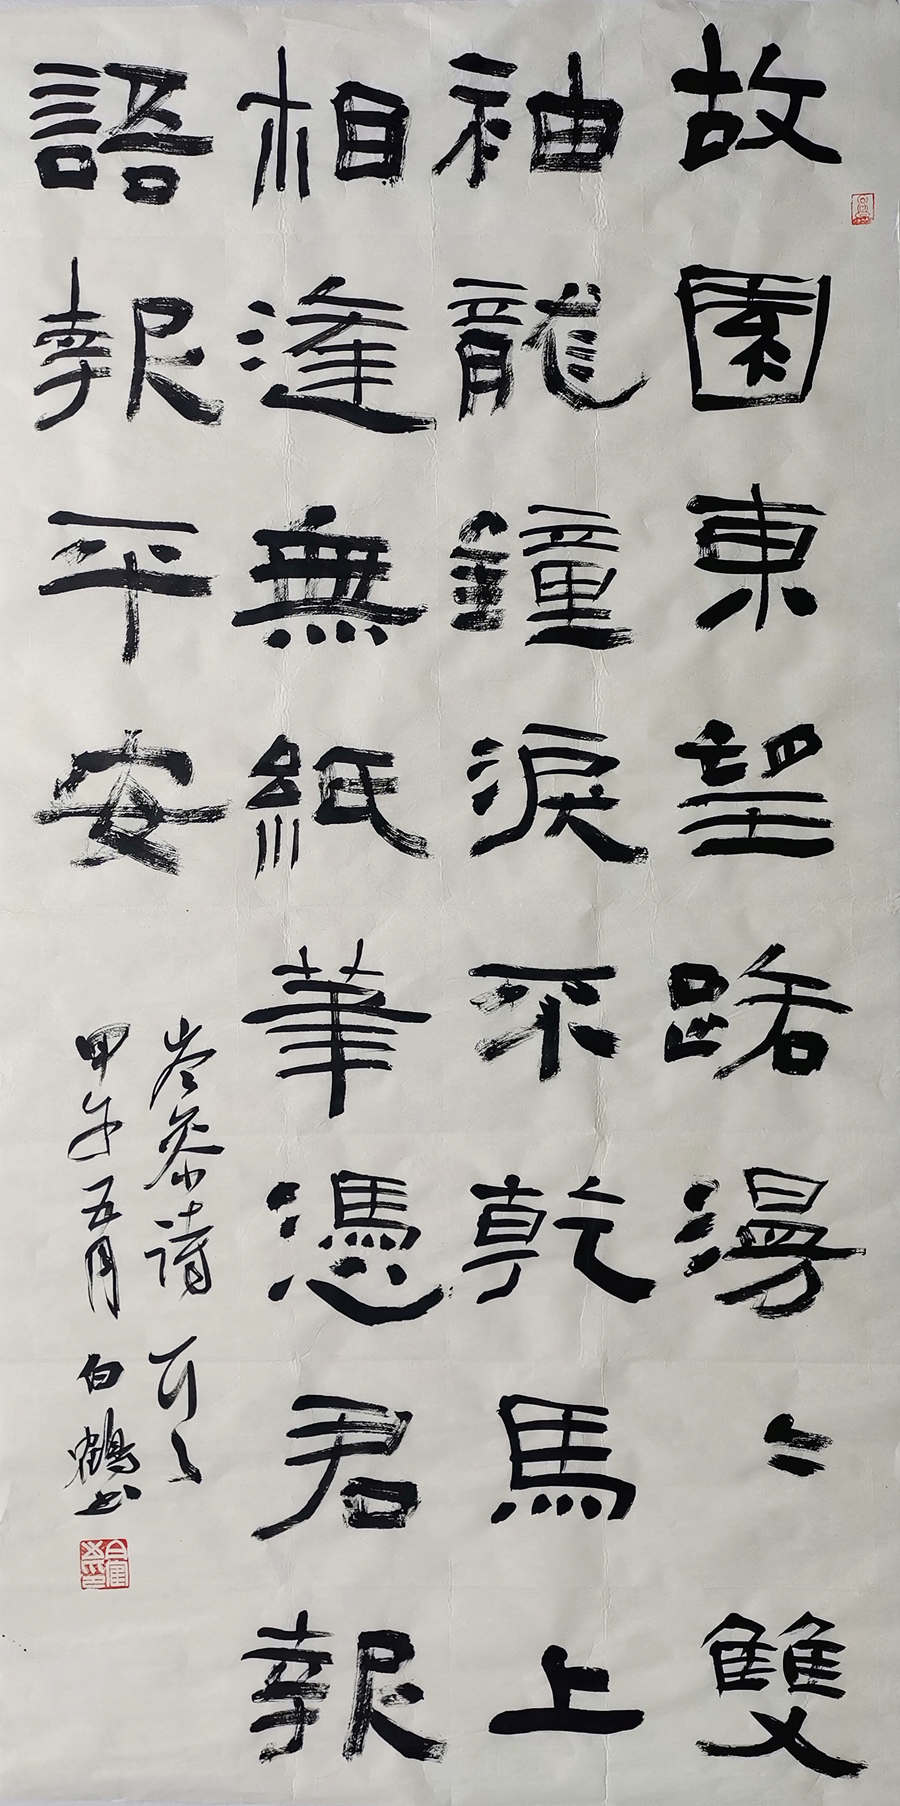 故園東望路漫〻雙
袖龍鐘淚不乾馬上
相逢無紙筆憑君報
語報平安
岑參詩一首
甲午五月白鶴書